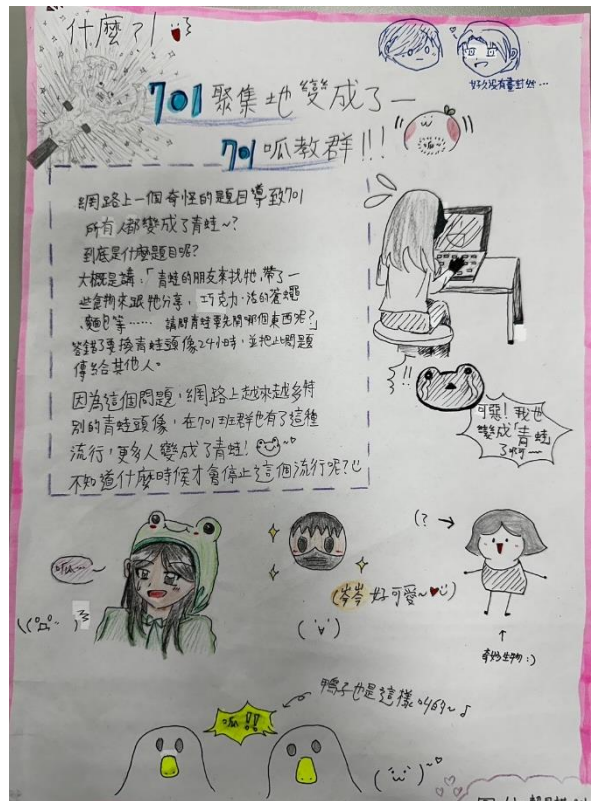 什麼?!
好久沒有畫封然…
701聚集地變成了—
701呱教群!!!
呱
網路上一個奇怪的題目導致701
所有人都變成了青蛙~?
到底是什麼題目呢?
大概是講:「青蛙的朋友來找牠,帶了一
些食物來跟牠分享,巧克力、活的蒼蠅
、麵包等…… 請問青蛙要先開哪個東西呢?」
答錯了要換青蛙頭像24小時,並把此問題
傳給其他人。
因為這個問題,網路上越來越多特
別的青蛙頭像,在701班群也有了這種
流行,更多人變成了青蛙!
不知道什麼時候才會停止這個流行呢?
!!
可惡!我也
變成「青蛙
了啊~
呱~
(?→
(岑岑好可愛~
奇妙生物:)
鴨子也是這樣
呱!!